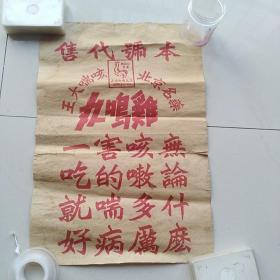 本號代售
北京名藥
咳喘大王
雞鳴丸
無論什麼
咳嗽多厲
害的喘病
一吃就好